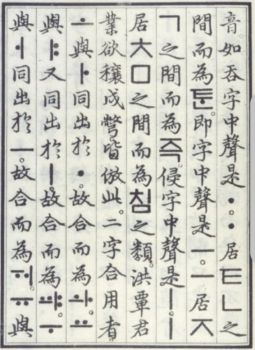 音。如呑字中聲是ㆍ。ㆍ居ㅌㄴ之
間而為ᄐᆞᆫ。即字中聲是ㅡ。ㅡ居ㅈ
ㄱ之間而為즉。侵字中聲是ㅣ。ㅣ
居ㅊㅁ之間而為침之類。洪覃君
業欲穰戌彆。皆倣此。二字合用者。
ㅗ與ㅏ同出於ㆍ。故合而為ㅘ。ㅛ
與ㅑ又同出於ㅣ。故合而為ㆇ。ㅜ
與ㅓ同出於ㅡ。故合而為ㅝ。ㅠ與